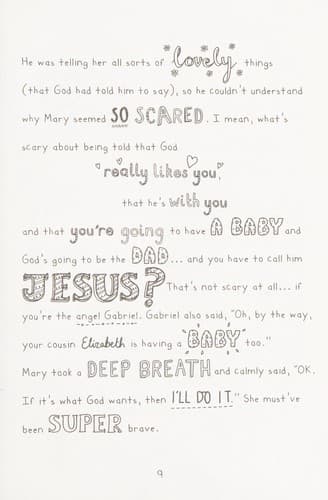 He was telling her all sorts of lovely things
(that God had told him to say), so he couldn't understand
why Mary seemed SO SCARED. I mean, what's
scary about being told that God
"really likes you",
that he's with you
and that you're going to have A BABY and
God's going to be the DAD... and you have to call him
JESUS? That's not scary at all... if
you're the angel Gabriel. Gabriel also said, "Oh, by the way,
your cousin Elizabeth is having a "BABY" too."
Mary took a DEEP BREATH and calmly said, "OK.
If it's what God wants, then I'LL DO IT." She must've
been SUPER brave.
9